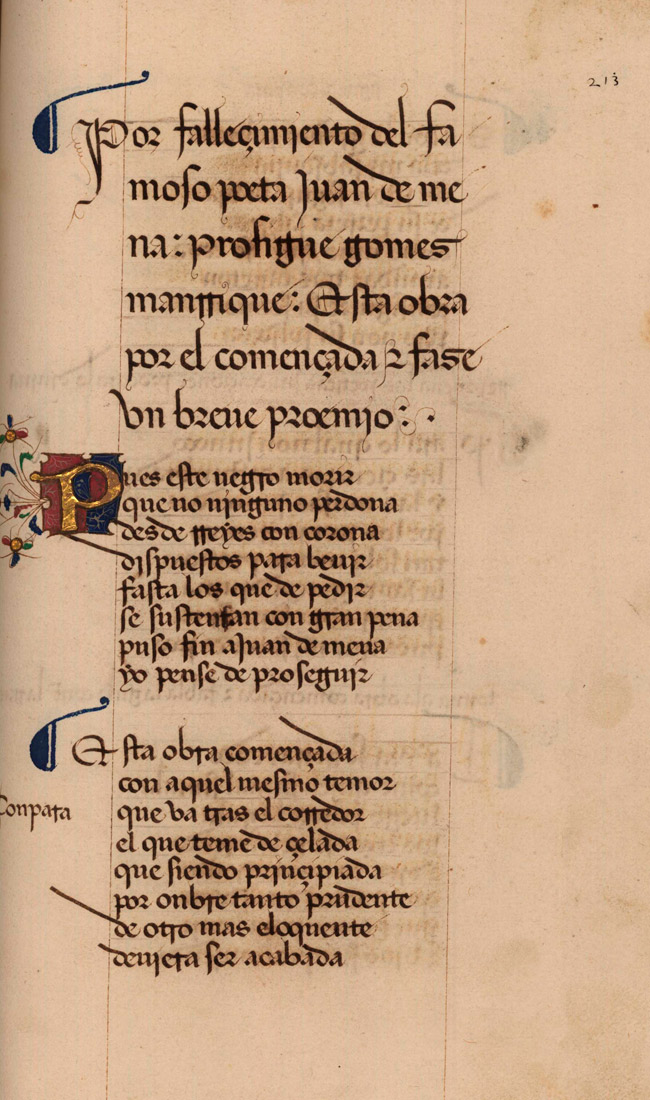 213
Por falleçimiento del fa
moso poeta Juan de me
na: prosigue gomes
manrrique: Esta obra
por el començada & fase
vn breue proemio:.
Pues este negro morir
que no ninguno perdona
desde rreyes con corona
dispuestos para beuir
fasta los que de pedir
se sustentan con gran pena
puso fin a Juan de mena
yo pense de proseguir
Esta obra començada
con aquel mesmo temor
Conpara
que va tras el corredor
el que teme de çelada
que siendo prinçipiada
por onbre tanto prudente
de otro mas eloquente
deuiera ser acabada